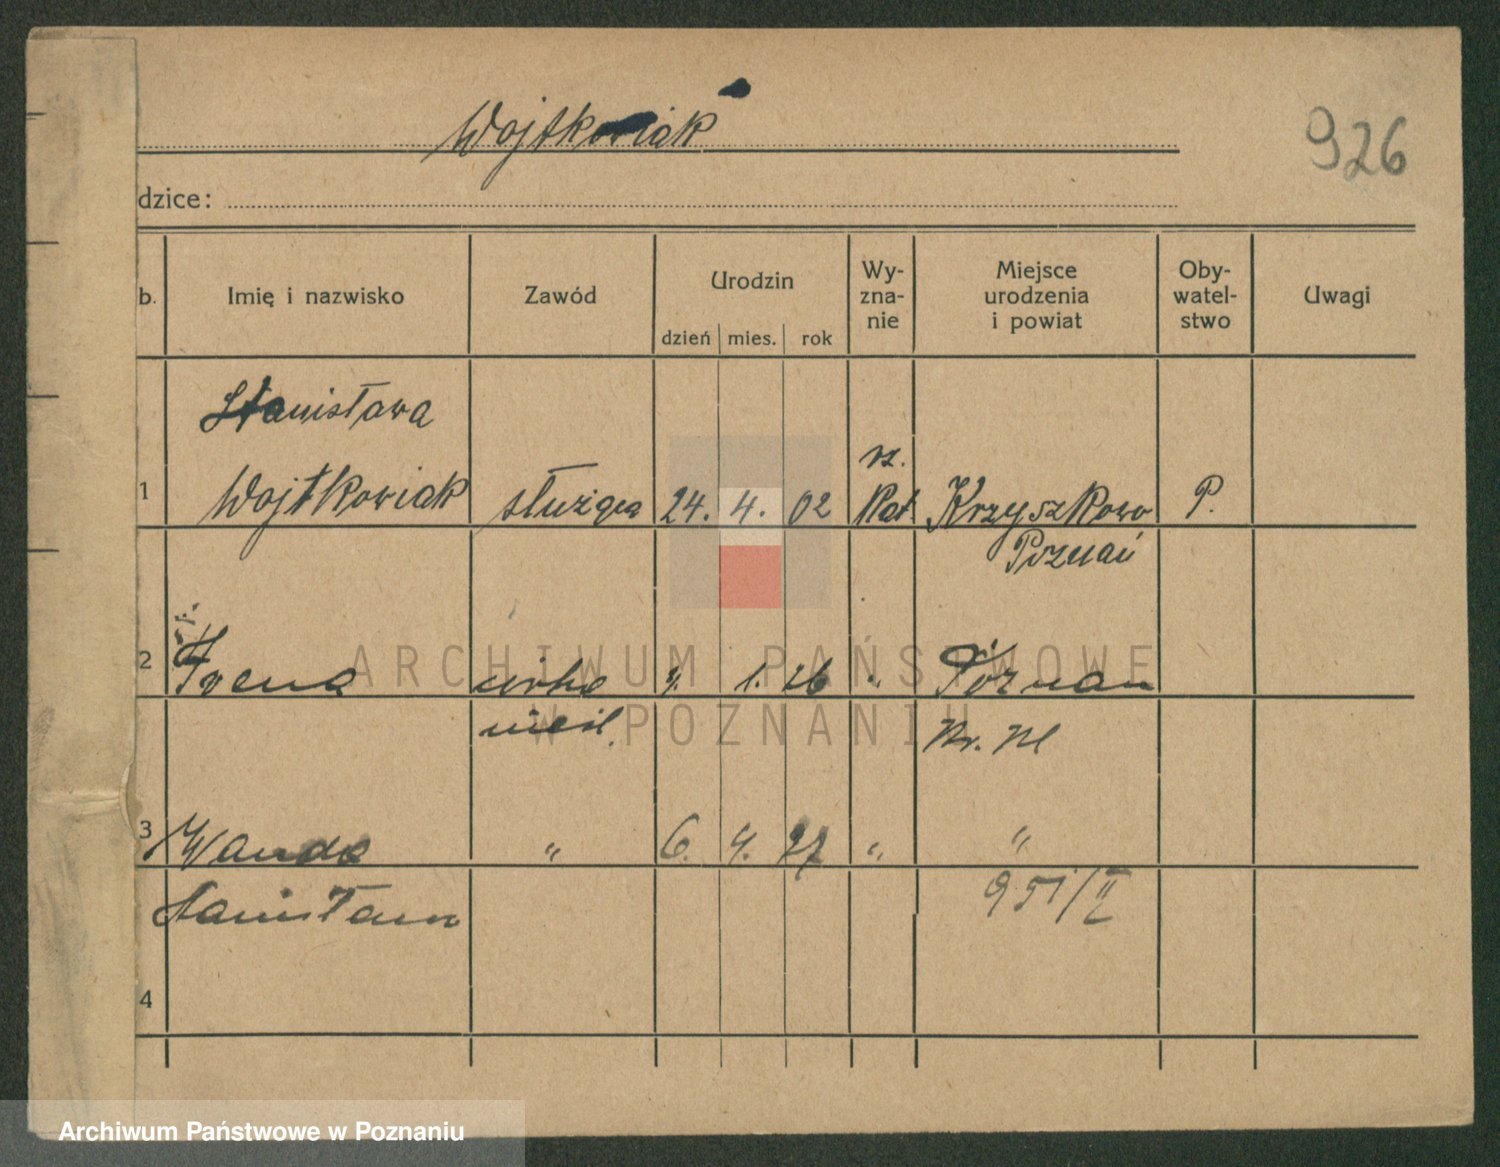 Wojtkowiak
926
dzice:
b. Imię i nazwisko Zawód Urodzin dzień mies. rok Wy-zna-nie Miejsce urodzenia i powiat Oby-watel-stwo Uwagi
Stanisława
rz.
1 Wojtkowiak służąca 24. 4. 02 Kat. Krzyszkowo P.
Poznań
2 Irena córka 1. 26 " Poznań
nieśl.
3 Wanda " 6. 4. 27 " "
Stanisława 951/II
4
ARCHIWUM PAŃSTWOWE
W POZNANIU
Archiwum Państwowe w Poznaniu